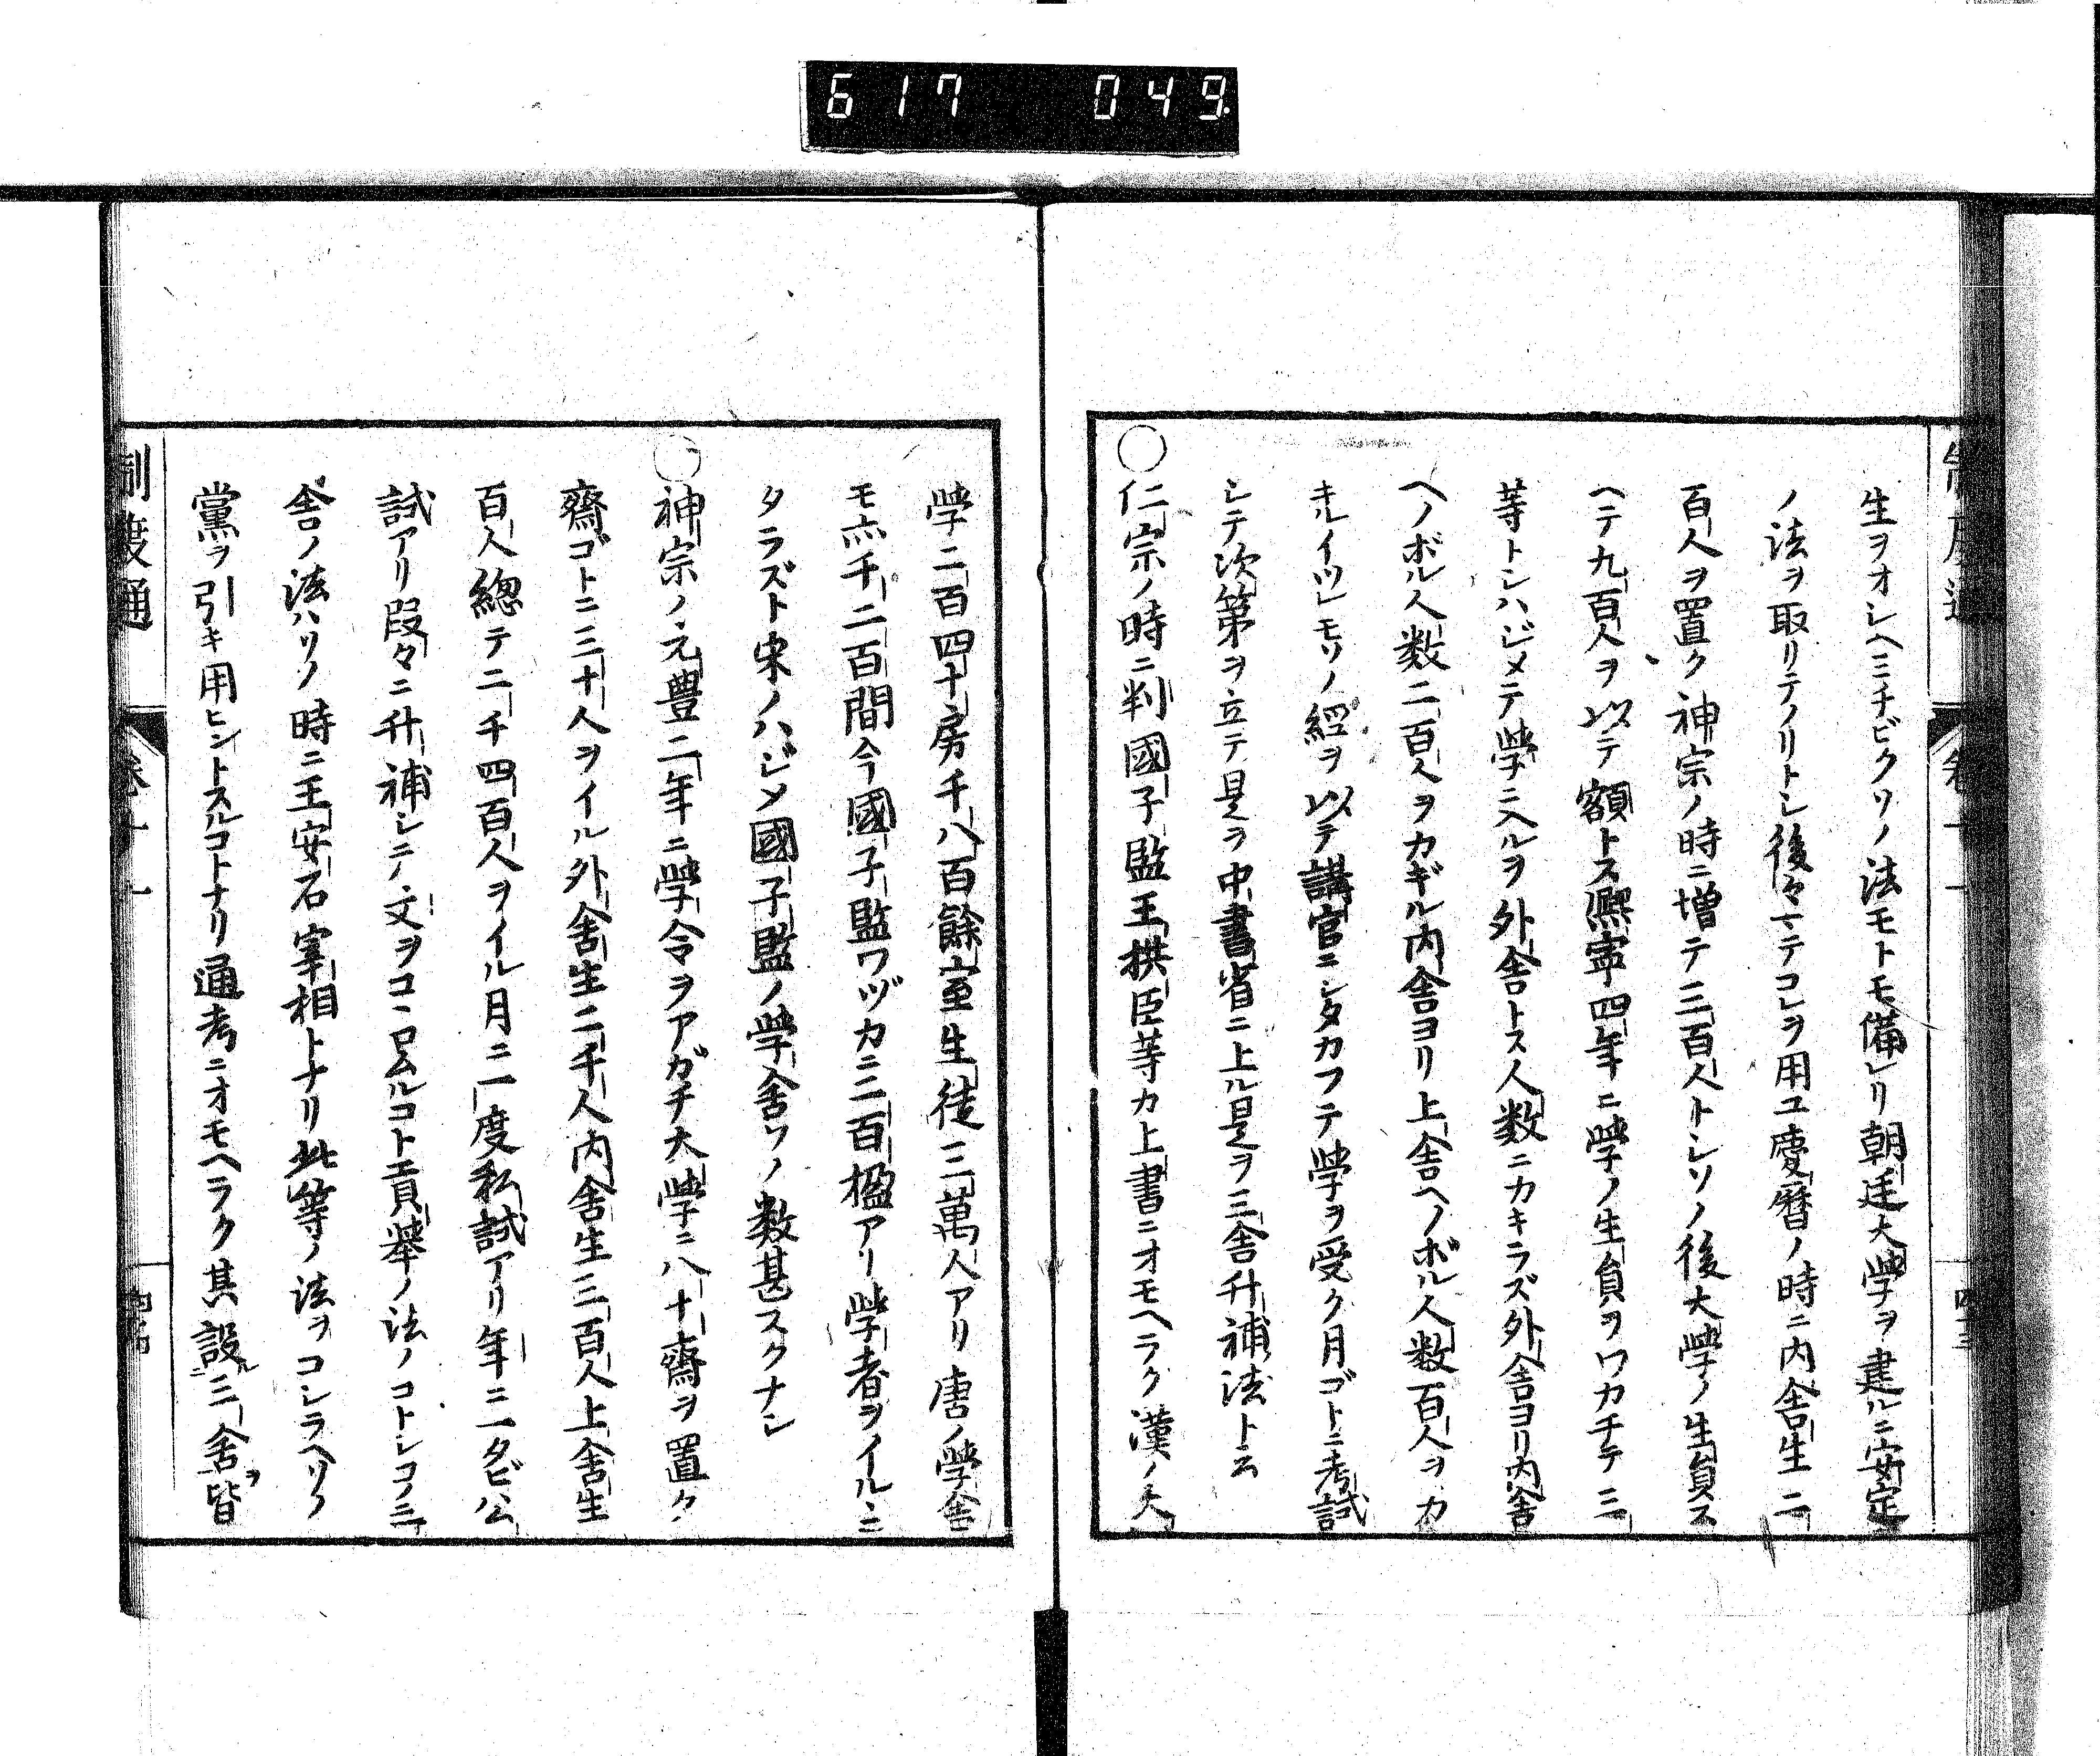 617 049
生ヲオシヘミチビクソノ法モトモ備レリ朝廷大學ヲ建ルニ安定
ノ法ヲ取リテノリトシ後々マテコレヲ用ユ慶曆ノ時ニ内舎生二
百人ヲ置ク神宗ノ時ニ增テ三百人トシソノ後大學ノ生員ス
ヘテ九百人ヲ以テ額トス熈寧四年ニ學ノ生員ヲワカチテ三
等トシハジメテ學ニ入ルヲ外舎トス人数ニカキラズ外舎ヨリ内舎
ヘノボル人数二百人ヲカギル内舎ヨリ上舎ヘノボル人数百人ヲカ
キルイツレモソノ經ヲ以テ講官ニシタカフテ學ヲ受ク月ゴトニ考試
シテ次第ヲ立テ是ヲ中書省ニ上ル是ヲ三舎升補法ト云
〇仁宗ノ時ニ判國子監王拱臣等カ上書ニオモヘラク漢ノ大
學二百四十房千八百餘室生徒三萬人アリ唐ノ學舎
モ亦千二百間今國子監ワヅカ二百楹アリ學者ヲイルニ
タラズト宋ノハジメ國子監ノ學舎ソノ数甚スクナシ
〇神宗ノ元豊二年ニ學令ヲアガチ大學ニ八十齋ヲ置ク
齋ゴトニ三十人ヲイル外舎生二千人内舎生三百人上舎生
百人總テ二千四百人ヲイル月ニ一度私試アリ年ニ一タビ公
試アリ段々ニ升補シテ文ヲコヽロムルコト貢舉ノ法ノコトシコノ三
舎ノ法ハソノ時ニ王安石宰相トナリ此等ノ法ヲコシラヘソノ
黨ヲ引キ用ヒントスルコトナリ通考ニオモヘラク其設ルニ三舎ヲ皆
制度通 卷十一